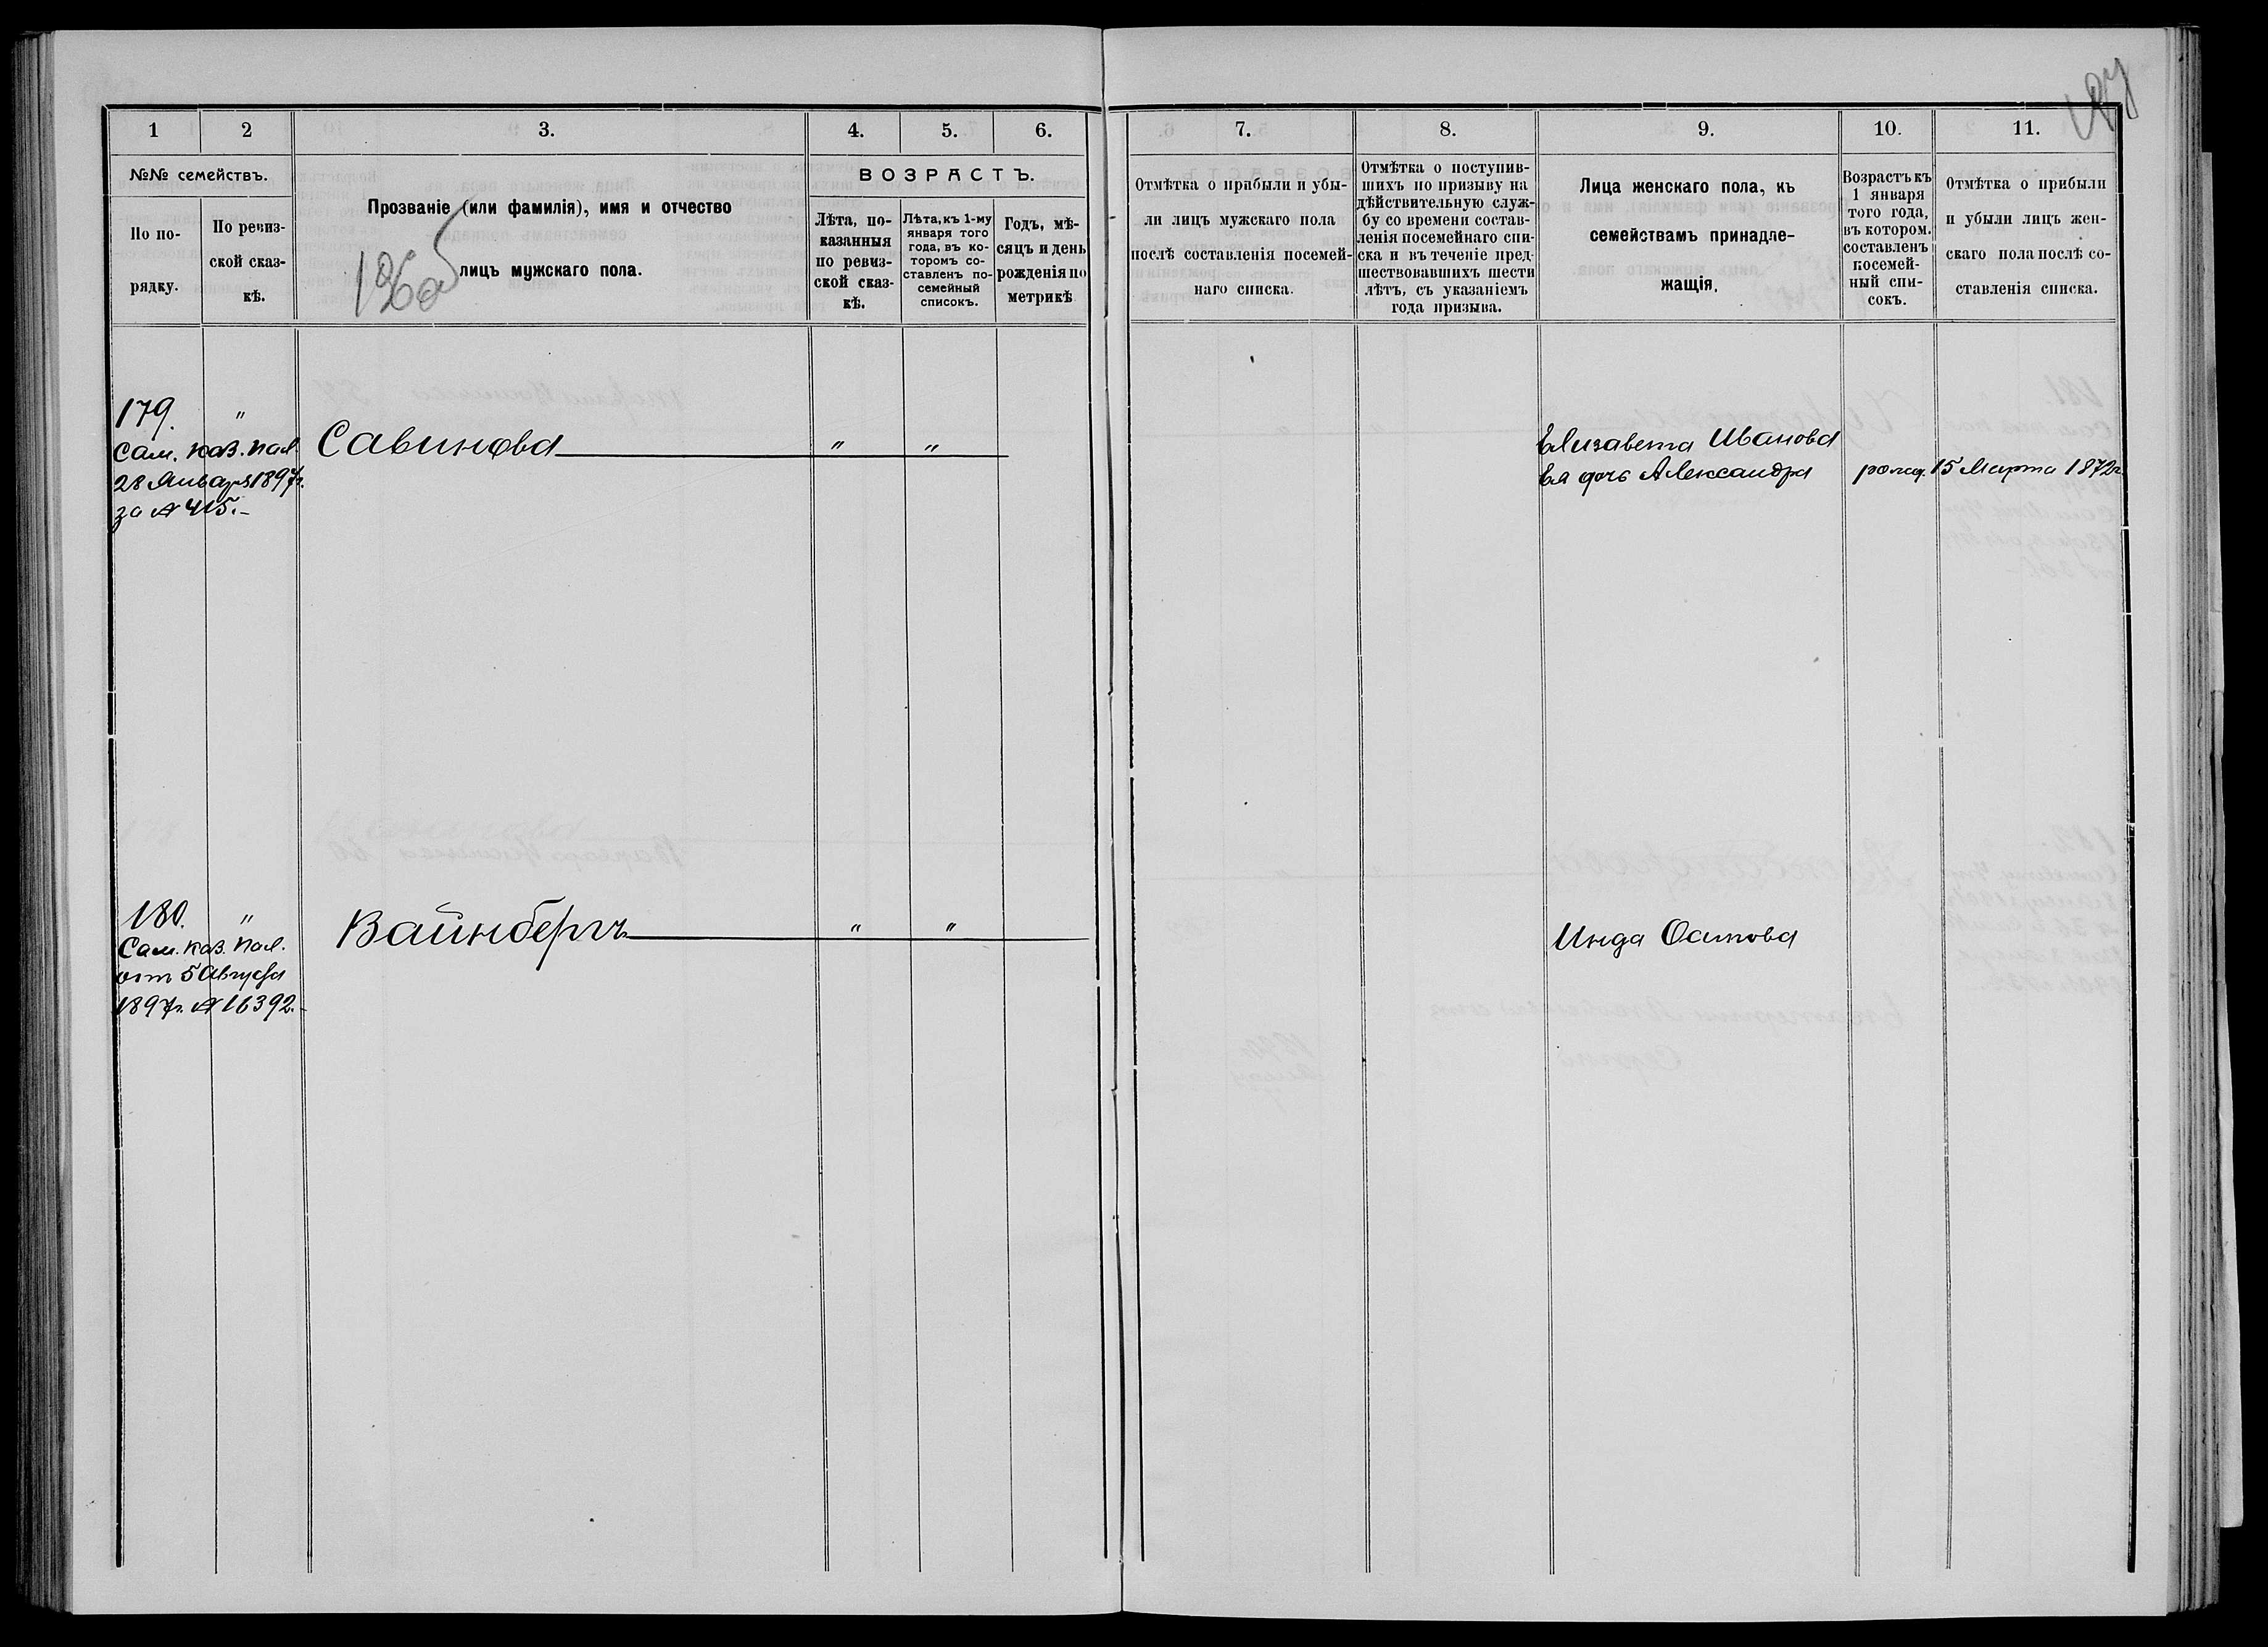 1 2 3. 4. 5. 6.
№№ семействъ.
По по-
рядку.
По ревиз-
ской сказ-
кѣ.
Прозваніе (или фамилія), имя и отчество
лицъ мужскаго пола.
126об
ВОЗРАСТЪ.
Лѣта, по-
казанныя
по ревиз-
ской сказ-
кѣ.
Лѣта, къ 1-му
января того
года, въ ко-
торомъ со-
ставленъ по-
семейный
списокъ.
Годъ, мѣ-
сяцъ и день
рожденія по
метрикѣ
179. "
Сам. каз. пал.
28 Января 1897г.
за № 415.-
Савинова " "
180. "
Сам. каз. пал.
от 5 Августа
1897г. № 16392.-
Вайнбергъ " "
7. 8. 9. 10. 11.
Отмѣтка о прибыли и убы-
ли лицъ мужскаго пола
послѣ составленія посемей-
наго списка.
Отмѣтка о поступив-
шихъ по призыву на
дѣйствительную служ-
бу со времени состав-
ленія посемейнаго спи-
ска и въ теченіе пред-
шествовавшихъ шести
лѣтъ, съ указаніемъ
года призыва.
Лица женскаго пола, къ
семействамъ принадле-
жащія.
Возрастъ къ
1 января
того года,
въ котором.
составленъ
посемей-
ный спи-
сокъ.
Отмѣтка о прибыли
и убыли лицъ жен-
скаго пола послѣ со-
ставленія списка.
127
Елизавета Иванова
Ея дочь Александра рожд. 15 Марта 1872г.
Инда Осипова